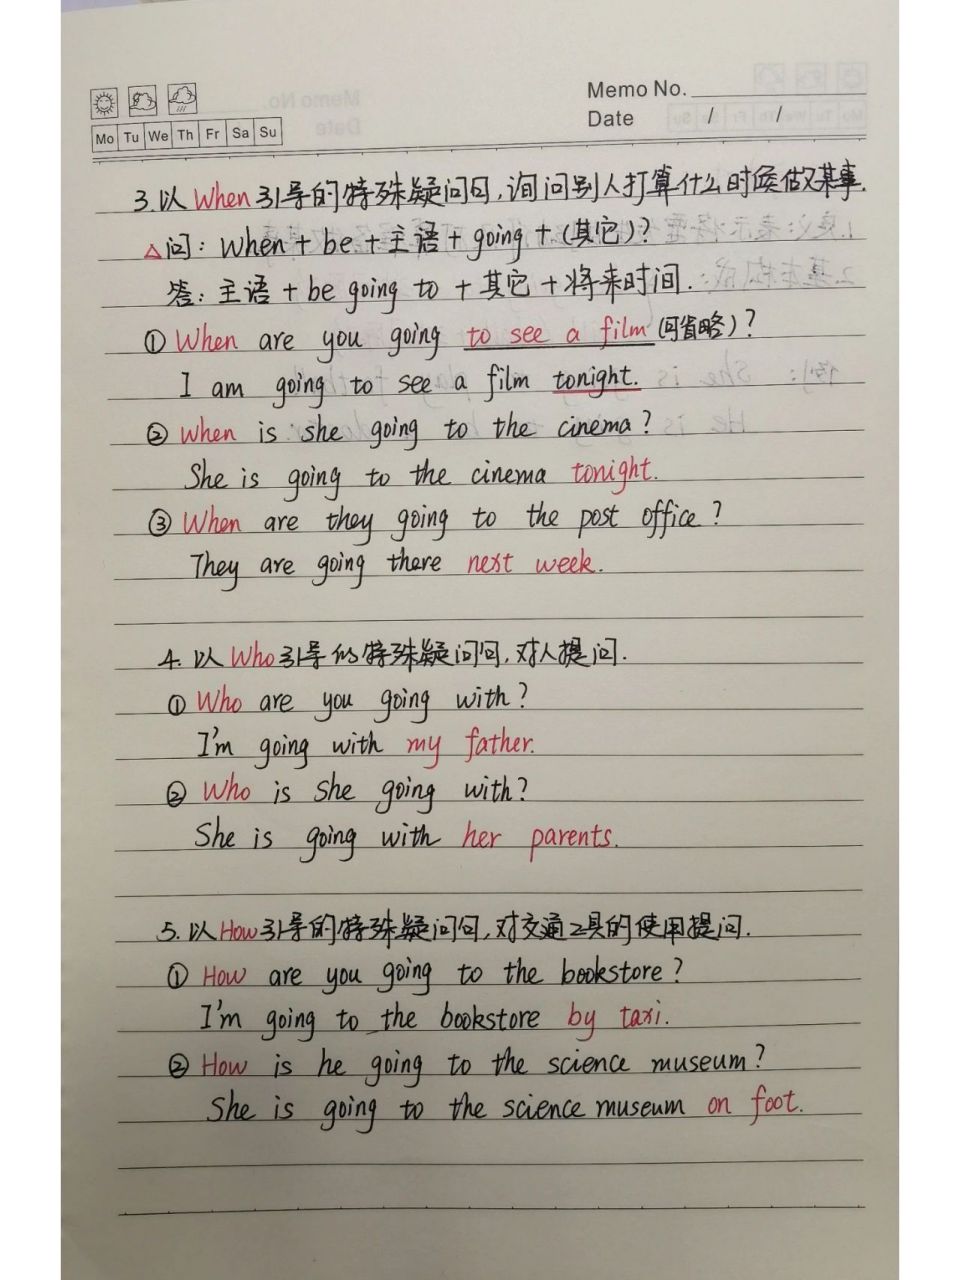 Memo No.
Date / /
Mo Tu We Th Fr Sa Su
3.以When引导的特殊疑问句,询问别人打算什么时候做某事.
△问: When + be + 主语 + going + (其它)?
答: 主语 + be going to + 其它 + 将来时间.
① When are you going to see a film (可省略)?
I am going to see a film tonight.
② When is she going to the cinema?
She is going to the cinema tonight.
③ When are they going to the post office?
They are going there next week.
4. 以Who引导的特殊疑问句,对人提问.
① Who are you going with?
I'm going with my father.
② Who is she going with?
She is going with her parents.
5. 以How引导的特殊疑问句,对交通工具的使用提问.
① How are you going to the bookstore?
I'm going to the bookstore by taxi.
② How is he going to the science museum?
She is going to the science museum on foot.